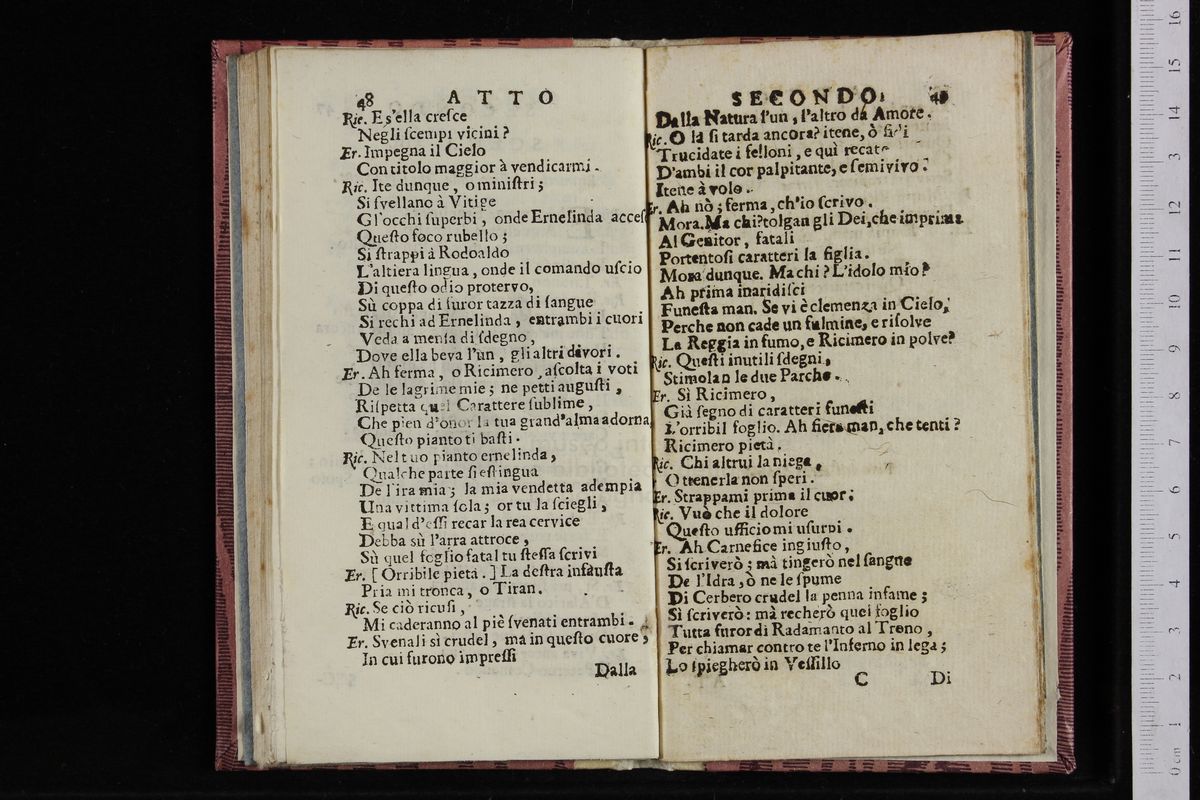 48 ATTO
Ric. Es'ella creſce
Negli ſcempi vicini?
Er. Impegna il Cielo
Con titolo maggior à vendicarmi.
Ric. Ite dunque, o miniſtri;
Si ſvellano à Vitige
Gl'occhi ſuperbi, onde Ernelinda acceſ
Queſto foco rubello;
Si ſtrappi à Rodoaldo
L'altiera lingua, onde il comando uſcio
Di queſto odio protervo,
Sù coppa di furor tazza di ſangue
Si rechi ad Ernelinda, entrambi i cuori
Veda a menſa di ſdegno,
Dove ella beva l'un, gli altri divori.
Er. Ah ferma, o Ricimero, aſcolta i voti
De le lagrime mie; ne petti auguſti,
Riſpetta quel Carattere ſublime,
Che pien d'onor la tua grand'alma adorna,
Queſto pianto ti baſti.
Ric. Nel tuo pianto ernelinda,
Qualche parte ſi eſtingua
De l'ira mia; la mia vendetta adempia
Una vittima ſola; or tu la ſciegli,
E qual d'eſſi recar la rea cervice
Debba sù l'arra attroce,
Sù quel foglio fatal tu ſteſſa ſcrivi
Er. [Orribile pietà.] La deſtra infauſta
Pria mi tronca, o Tiran.
Ric. Se ciò ricuſi,
Mi caderanno al piè ſvenati entrambi.
Er. Svenali sì crudel, ma in queſto cuore,
In cui furono impreſſi
Dalla
SECONDO. 49
Dalla Natura l'un, l'altro da Amore.
Ric. O là ſi tarda ancora? itene, ò fidi
Trucidate i felloni, e quì recate
D'ambi il cor palpitante, e ſemivivo.
Itene à volo.
Er. Ah nò; ferma, ch'io ſcrivo.
Mora. Ma chi? tolgan gli Dei, che imprima
Al Genitor, fatali
Portentoſi caratteri la figlia.
Mora dunque. Ma chi? L'idolo mio?
Ah prima inaridiſci
Funeſta man. Se vi è clemenza in Cielo,
Perche non cade un fulmine, e riſolve
La Reggia in fumo, e Ricimero in polve?
Ric. Queſti inutili ſdegni,
Stimolan le due Parche.
Er. Sì Ricimero,
Già ſegno di caratteri funeſti
L'orribil foglio. Ah fiera man, che tenti?
Ricimero pietà.
Ric. Chi altrui la niega,
Ottenerla non ſperi.
Er. Strappami prima il cuor;
Ric. Vuò che il dolore
Queſto ufficio mi uſurpi.
Er. Ah Carnefice ingiuſto,
Si ſcriverò; mà tingerò nel ſangue
De l'Idra, ò ne le ſpume
Di Cerbero crudel la penna infame;
Si ſcriverò: mà recherò quel foglio
Tutta furor di Radamanto al Treno,
Per chiamar contro te l'Inferno in lega;
Lo ſpiegherò in Veſſillo
C Di
0 cm 1 2 3 4 5 6 7 8 9 10 11 12 13 14 15 16